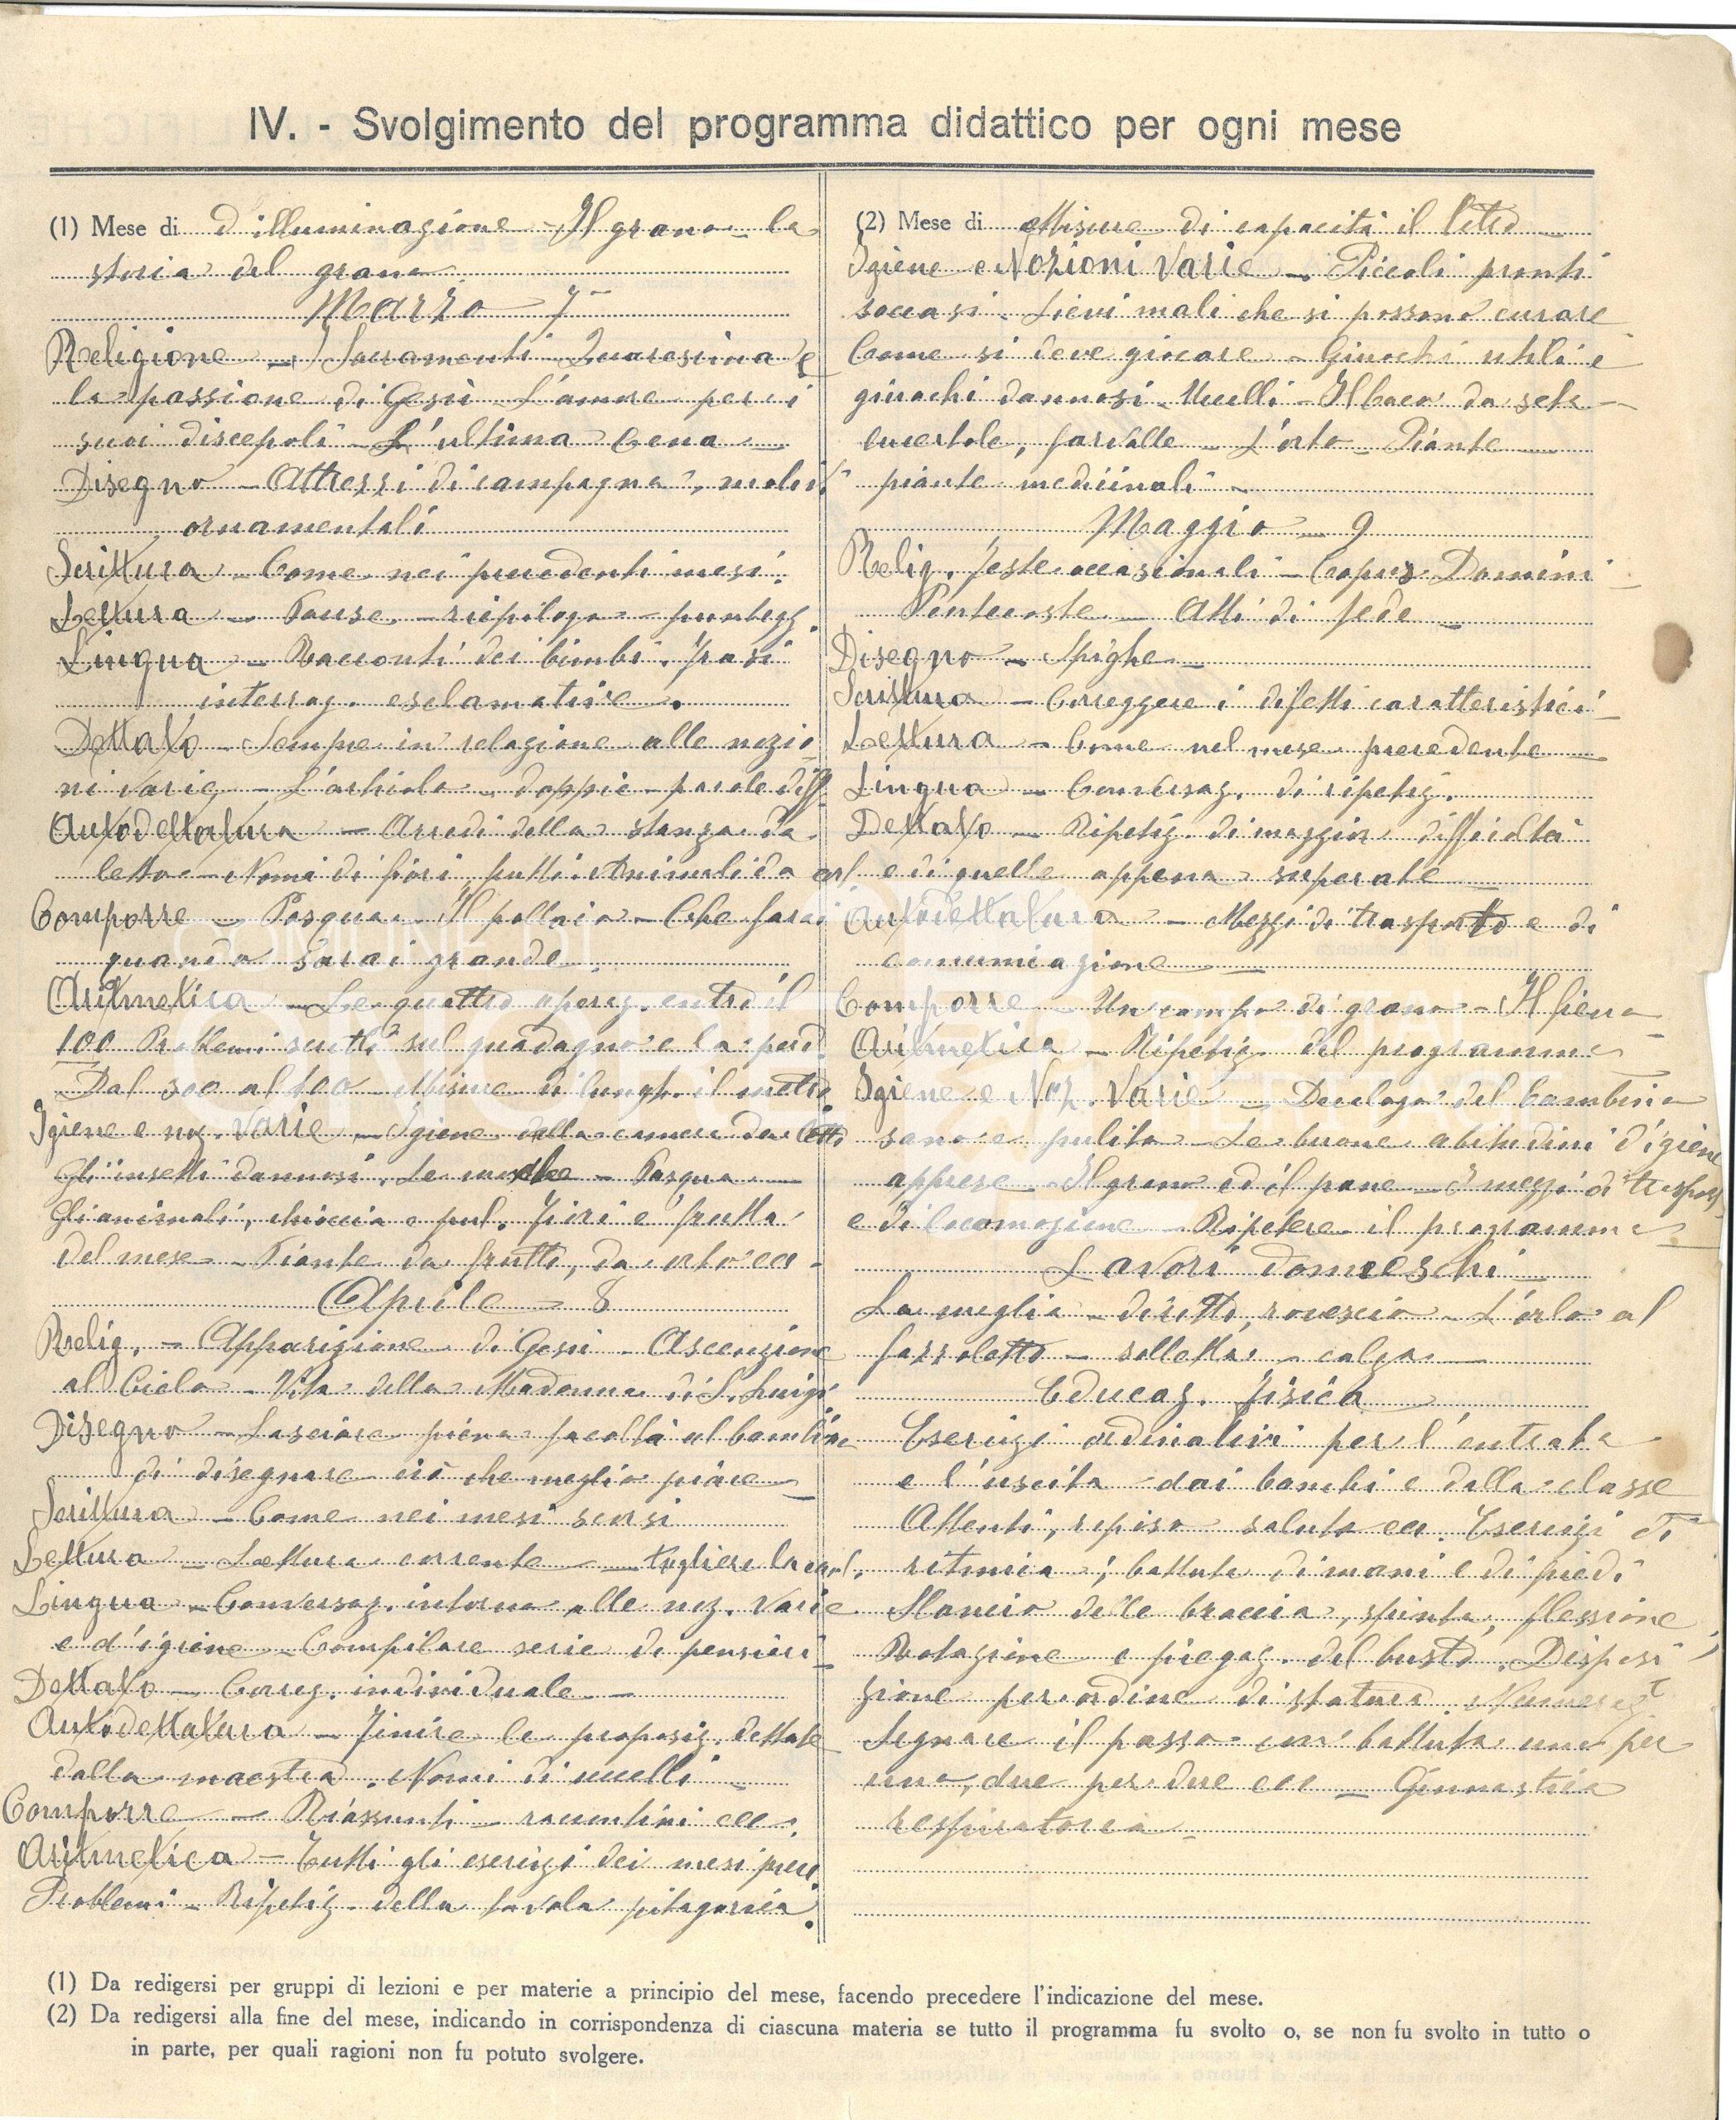 IV. - Svolgimento del programma didattico per ogni mese
(1) Mese di d'illuminazione - Il grano - la
storia del grano
Marzo - 7
Religione - I Sacramenti - Quaresima e
la passione di Gesù - L'amore per i
suoi discepoli - L'ultima Cena -
Disegno - Attrezzi di campagna,
ornamentali
Scrittura - Come nei precedenti mesi.
Lettura - Pause - riepilogo - punteg.
Lingua - Racconti dei bimbi. Frasi
interrog. esclamative.
Dettato - Sempre in relazione alle nozio
ni varie - doppie - parole diff.
Autodettatura - Arredi della stanza da
letto - Nomi di fiori, frutti. Animali da cort
Comporre - Pasqua. Il pollaio - Che farai
quando sarai grande.
Aritmetica - Le quattro operaz. entro il
100 Problemi scritti sul guadagno e la perd.
Dal 300 al 400 - Misure di lungh. il metro
Igiene e noz. varie - Igiene della camera da letto
Gli insetti dannosi. Le mosche - Pasqua -
Gli animali, chioccia e pul. Fiori e frutta
del mese - Piante da frutto, da orto ecc.
Aprile - 8
Relig. - Apparizione di Gesù - Ascenzione
al Cielo - Vita della Madonna di S. Luigi
Disegno - Lasciare piena facoltà al bambino
di disegnare ciò che meglio piace -
Scrittura - Come nei mesi scorsi
Lettura - Lettura corrente - togliere la cant.
Lingua - Conversaz. intorno alle noz. varie
e d'igiene - Compilare serie di pensieri -
Dettato - Correg. individuale -
Autodettatura - Finire le proposiz. dettate
dalla maestra. Nomi di uccelli -
Comporre - Riassunti - raccontini ecc.
Aritmetica - Tutti gli esercizi dei mesi prec.
Problemi - Ripetiz. della tavola pitagorica.
(2) Mese di Misure di capacità il litro -
Igiene e Nozioni Varie - Piccoli pronti
soccorsi. Lievi mali che si possono curare
Come si deve giocare - Giuochi utili e
giuochi dannosi. Uccelli - Il baco da seta -
lucertole, farfalle - L'orto - Piante -
piante medicinali -
Maggio - 9
Relig. Feste occasionali - Corpus Domini
Pentecoste - Atti di fede -
Disegno - Spighe -
Scrittura - Correggere i difetti caratteristici
Lettura - Come nel mese precedente -
Lingua - Conversaz. di ripetiz.
Dettato - Ripetiz. di maggior difficoltà
e di quelle appena superate -
Autodettatura - Mezzi di trasporto e di
comumiazione -
Comporre - Un campo di grano - Il fieno
Aritmetica - Ripetiz. del programma
Igiene e Noz. Varie - Decalogo del bambino
sano e pulito - Le buone abitudini d'igiene
apprese - Il grano ed il pane - I mezzi di trasport
e di locomozione - Ripetere il programma -
Lavori donneschi -
La maglia - diritto, rovescio - L'orlo al
fazzoletto - soletta - calza -
Educaz. fisica
Esercizi ordinativi per l'entrata
e l'uscita dai banchi e dalla classe
Attenti, riposo saluto ecc. Esercizi di
ritmica, battuta di mani e di piedi
Slancio delle braccia, spinta, flessione
Rotazione e piegaz. del busto. Disposi
zione per ordine di statura. Numeraz.
Segnare il passo con battuta uno per
uno, due per due ecc - Ginnastica
respiratoria -
(1) Da redigersi per gruppi di lezioni e per materie a principio del mese, facendo precedere l'indicazione del mese.
(2) Da redigersi alla fine del mese, indicando in corrispondenza di ciascuna materia se tutto il programma fu svolto o, se non fu svolto in tutto o
in parte, per quali ragioni non fu potuto svolgere.